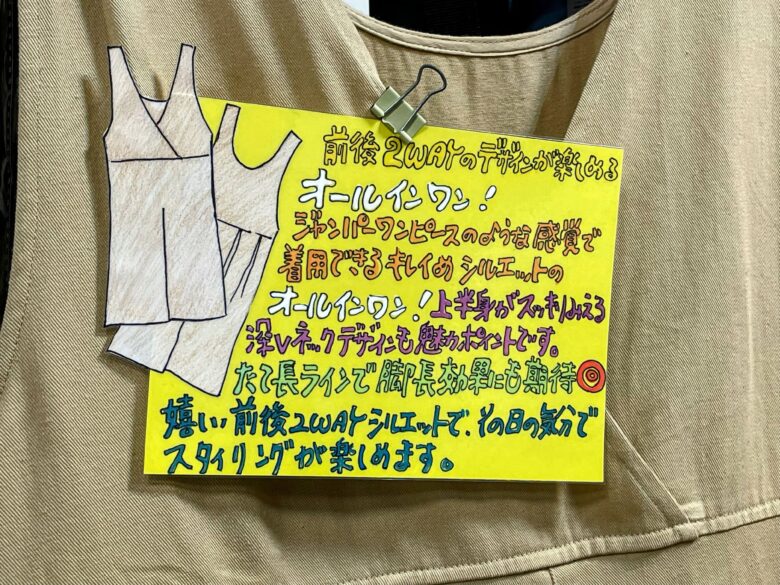 前後2WAYのデザインが楽しめる
オールインワン!
ジャンパーワンピースのような感覚で
着用できるキレイめシルエットの
オールインワン!上半身がスッキリみえる
深Vネックデザインも魅力ポイントです。
たて長ラインで脚長効果にも期待◎
嬉しい前後2WAYシルエットで、その日の気分で
スタイリングが楽しめます。